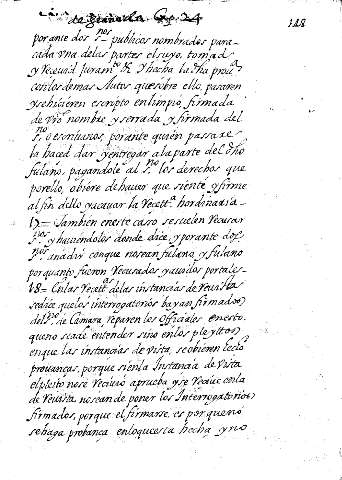 de granada Cap. 24
188
por ante dos s.nos publicos nombrados para
cada vna de las partes el suyo, tomad
y Receuid juram.to & Y hecha la dha prou.a
con los demas Autos que sobre ello, pasaren
y se hizieren escripto en limpio, firmada
de vro nombre y serrada, y firmada del
s.no o escriuanos, por ante quien passare
la haced dar y entregar a la parte del dho
fulano, pagandole al s.no los derechos que
por ello, obiere de hauer que siente y firme
al fin dello y acauar la Recett.a hordinaria
17= Tambien en este caso se suelen Recusar
s.nos y haciendolos donde dice, y por ante dos
s.nos anadir conque no sean fulano, y fulano
por quanto fueron Recusados y auidos por tales
18= En las Recett.as de las instancias de Reuista
se dice, que los interrogatorios bayan firmados
del s.no de Camara, reparen los Officiales en esto,
que no se a de entender sino en los pleyttos
en que las instancias de vista, se obieren hecho
prouanças, porque si en la Instancia de Vista
el pleito no se Reciuio a prueba y se Reciue en la
de Reuista no sean de poner los Interrogatorios
firmados, porque el firmarse, es por que no
se haga probanca en lo que esta hecha y no